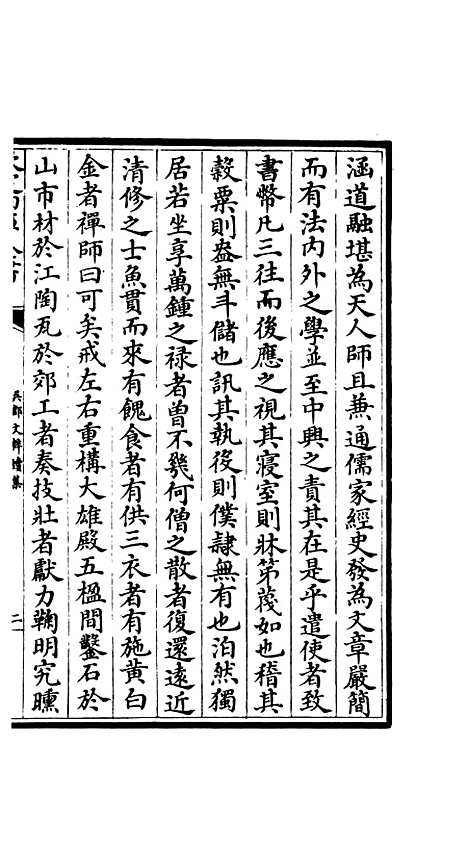 涵道融堪為天人師且兼通儒家經史發為文章嚴簡
而有法内外之學並至中興之責其在是乎遣使者致
書幣凡三往而後應之視其寢室則牀笫蔑如也稽其
榖粟則盎無斗儲也訊其執役則僕隷無有也泊然獨
居若坐享萬鍾之禄者曾不幾何僧之散者復還遠近
清修之士魚貫而來有餽食者有供三衣者有施黄白
金者禪師曰可矣戒左右重構大雄殿五楹間鑿石於
山市材於江陶瓦於郊工者奏技壯者獻力鞠明究曛
吳都文粹續集
二